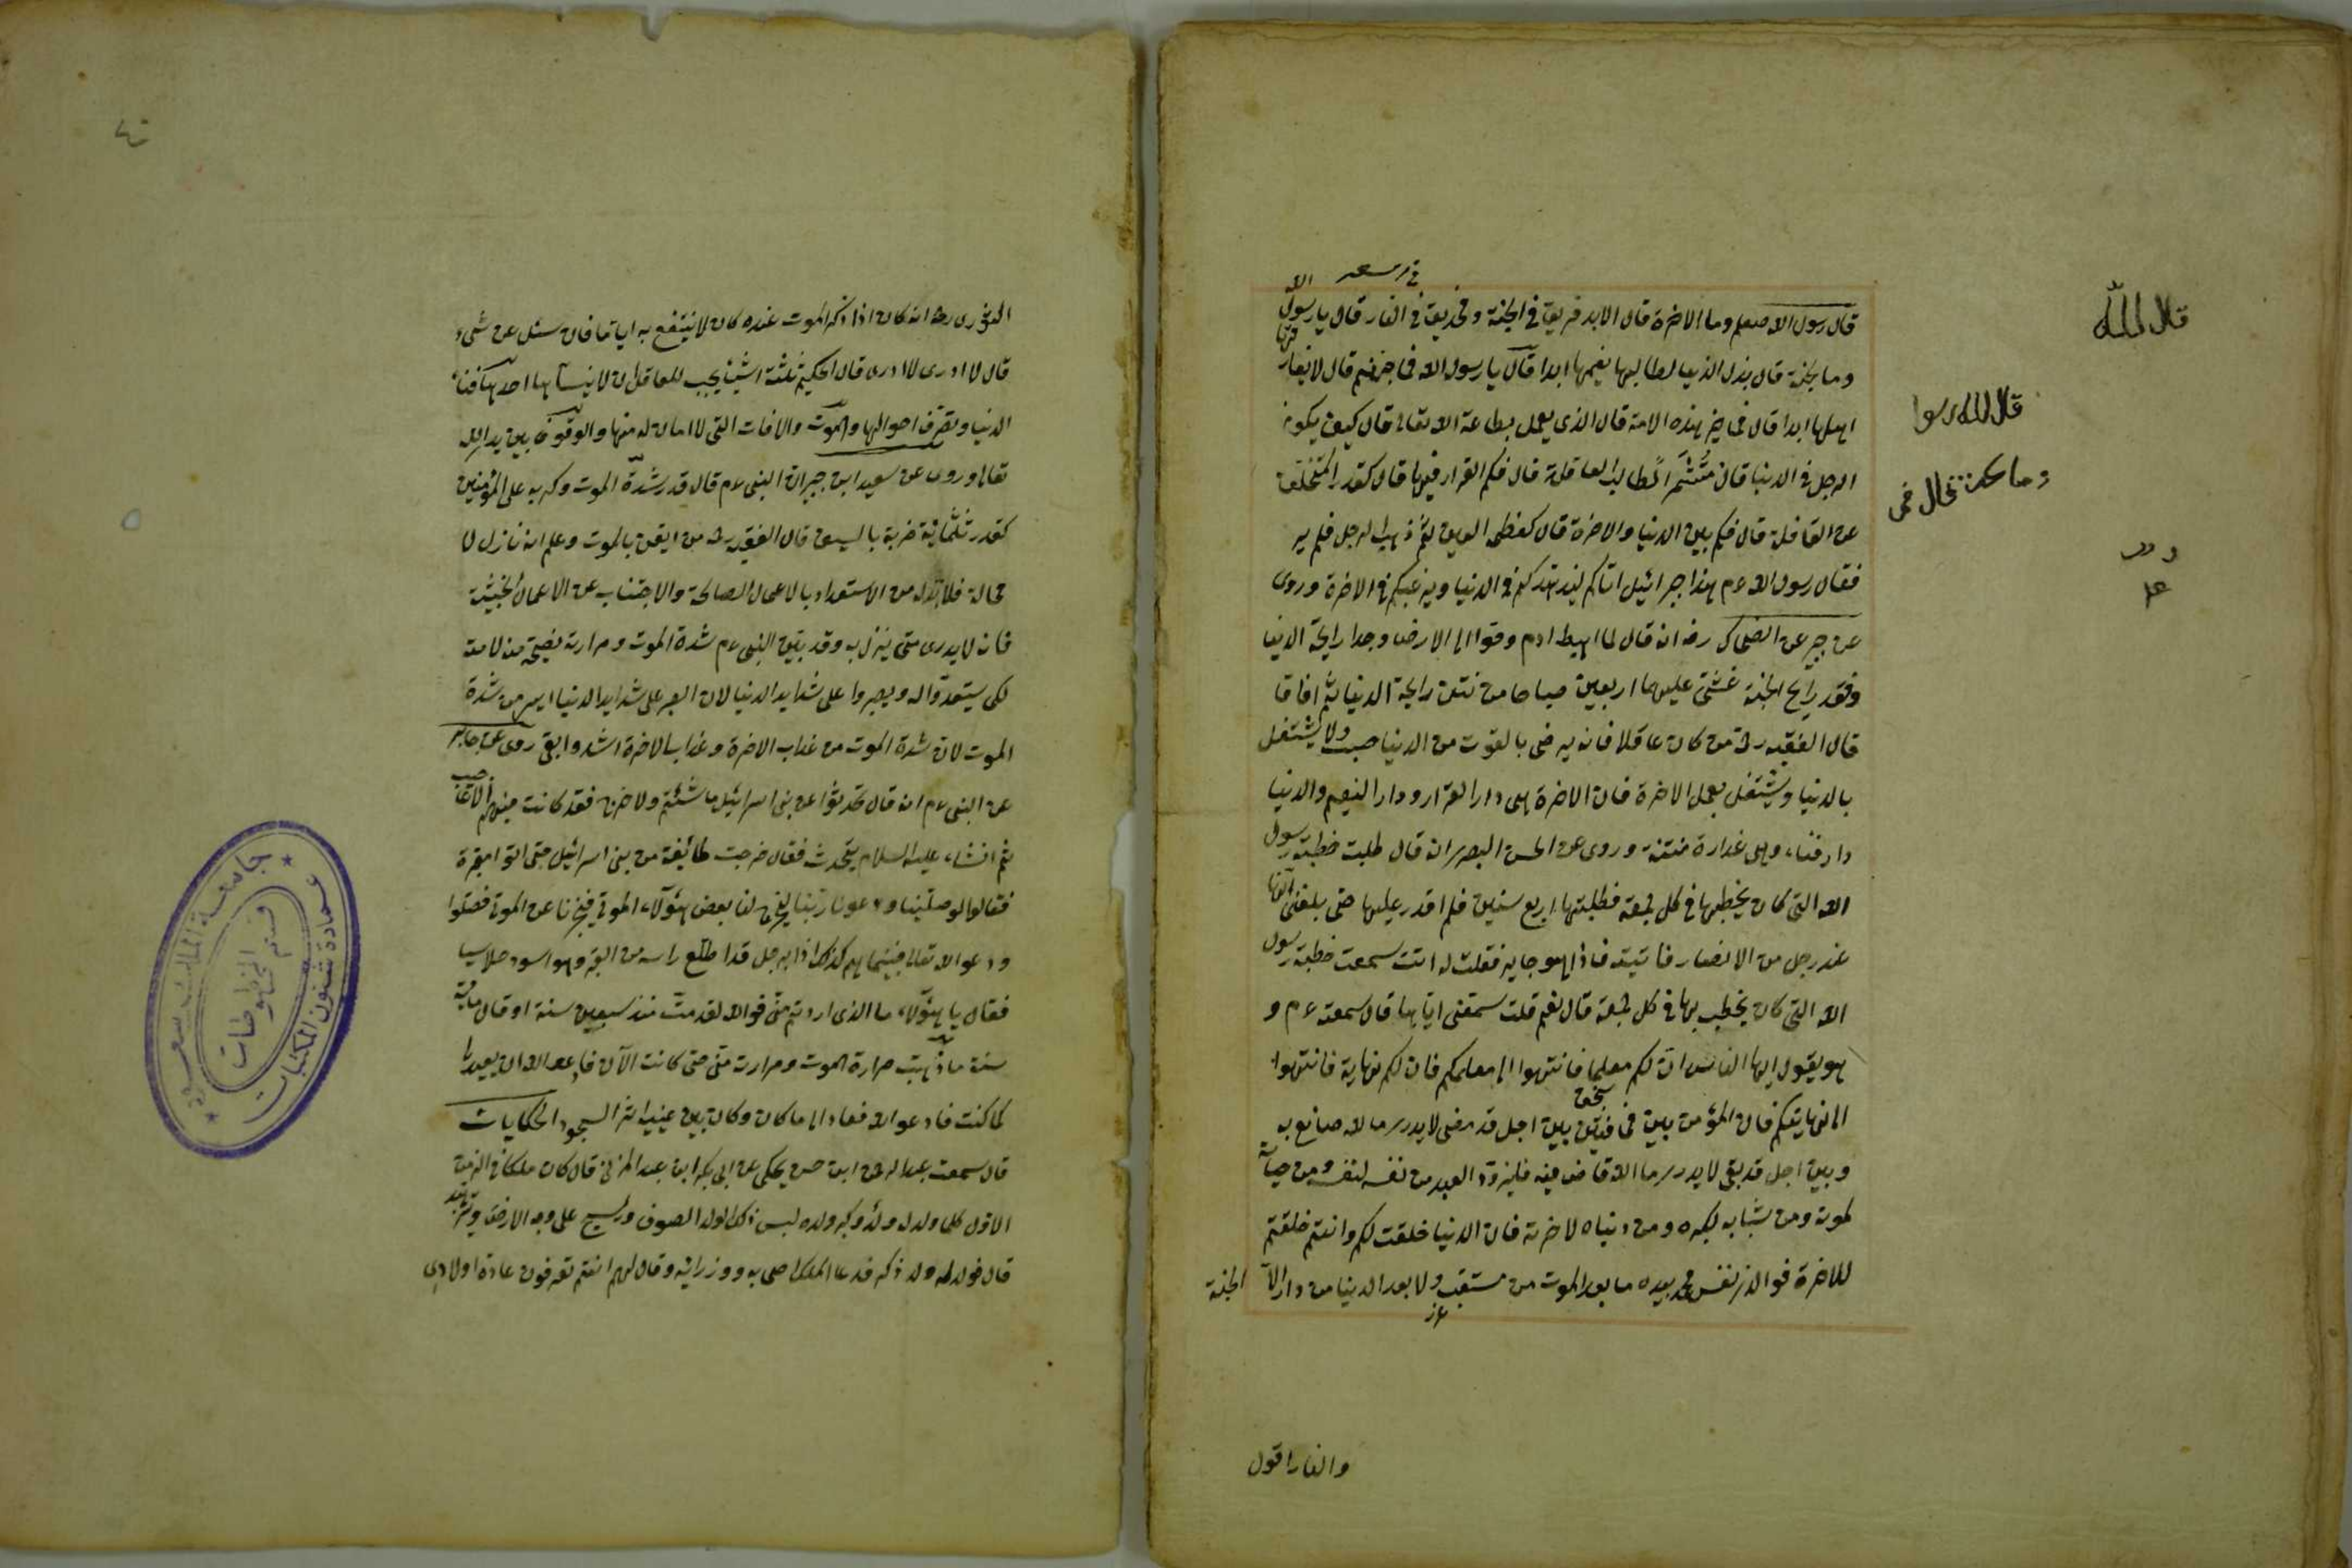 قال رسول الله صلعم وما الاخرة قال الابد فريق في الجنة وفريق في النار قال يا رسول الله
وما الجنة قال بذل الدنيا لطالبها نعيمها ابدا قال يا رسول الله فما جهنم قال لا يفارقها
اهلها ابدا قال فمن خير هذه الامة قال الذي يعمل بطاعة الله تعالى قال كيف يكون
الرجل في الدنيا قال متشمرا كطالب القافلة قال فكم القرار فيها قال كقدر المتخلف
عن القافلة قال فكم بين الدنيا والاخرة قال كغمض العين ثم ذهب الرجل فلم ير
فقال رسول الله عم هذا جبرائيل اتاكم ليزهدكم في الدنيا ويرغبكم في الاخرة وروى
عن جبر عن الضحاك رضه انه قال لما اهبط ادم وحوا الى الارض وجدا رايحة الدنيا
وفقد رايح الجنة غشي عليهما اربعين صباحا من نتن رايحة الدنيا ثم افاقا
قال الفقيه رح من كان عاقلا فانه يرضى بالقوت من الدنيا ولا يشتغل
بالدنيا ويشتغل بعمل الاخرة فان الاخرة هي دار القرار ودار النعيم والدنيا
دار فناء وهي غدارة مفتنة وروى عن الحسن البصرى انه قال طلبت خطبة رسول
الله التي كان يخطبها في كل جمعة فطلبتها اربع سنين فلم اقدر عليها حتى بلغنى انها
عند رجل من الانصار فاتيته فاذا هو جابر فقلت له انت سمعت خطبة رسول
الله التي كان يخطب بها في كل جمعة قال نعم قلت سمعنى اياها قال سمعته عم و
هو يقول ايها الناس ان لكم معلما فانتهوا الى معلمكم فان لكم نهاية فانتهوا
الى نهايتكم فان المؤمن بين مخافتين بين اجل قد مضى لا يدرى ما الله صانع به
وبين اجل قد بقى لا يدرى ما الله قاض فيه فليتزود العبد من نفسه لنفسه ومن حياته
لموته ومن شبابه لكبره ومن دنياه لاخرته فان الدنيا خلقت لكم وانتم خلقتم
للاخرة فوالذى نفس محمد بيده ما بعد الموت من مستعتب ولا بعد الدنيا من دار الا الجنة
والنار اقول
قال الله
قال الله رسوا
الثورى رح انه كان اذا ذكر الموت عنده كان لا ينتفع به اياما فان سئل عن شيء
قال لا ادرى لا ادرى قال الحكيم ثلثة اشياء يجب للعاقل ان لا ينساها احدها فناء
الدنيا وتصرف احوالها والموت والافات التي لا امان له منها والوقوف بين يدى الله
تعالى وروى عن سعيد ابن جبير ان النبى عم قال قدر شدة الموت وكربه على المؤمنين
كقدر ثلثمائة ضربة بالسيف قال الفقيه رح من ايقن بالموت وعلم انه نازل لا
محالة فلا بد له من الاستعداد بالاعمال الصالحة والاجتناب عن الاعمال الخبيثة
فانه لا يدرى متى ينزل به وقد بين النبى عم شدة الموت ومرارته نصيحة منه لامته
لكى يستعدوا له ويصبروا على شدايد الدنيا لان الصبر على شدايد الدنيا ايسر من شدة
الموت لان شدة الموت من عذاب الاخرة وعذاب الاخرة اشد وابقى روى عن جابر
عن النبى عم انه قال تحدثوا عن بنى اسرائيل ما شئتم ولا حرج فقد كانت فيهم الاعاجيب
ثم انشاء عليه السلام يتحدث فقال خرجت طائفة من بنى اسرائيل حتى اتوا مقبرة
فقالوا لو صلينا ودعونا ربنا يخرج لنا بعض هؤلاء الموتى فيخبرنا عن الموت فصلوا
ودعوا الله تعالى فبينما هم كذلك اذا برجل قد اطلع راسه من القبر وهو اسود
فقال يا هؤلاء ما الذى اردتم منى فوالله لقد مت منذ سبعين سنة او قال مائة
سنة ما ذهبت حرارة الموت ومرارته منى حتى كانت الآن فادعوا الله ان يعيدنى
كما كنت فادعوا الله فعاد الى ما كان وكان بين عينيه اثر السجود الحكايات
قال سمعت عبد الرحمن ابن حسن يحكى عن ابى بكر ابن عبد المزنى قال كان ملك في الزمن
الاول كلما ولد له ولد وكبر ولده لبس ذلك الولد الصوف وليسيح على وجه الارض ويتزهد
قال فولد له ولد ذكر فدعا الملك اصحابه ووزرائه وقال لهم انتم تعرفون عادة اولادى
جامعة الملك سعود
عمادة شئون المكتبات
قسم المخطوطات